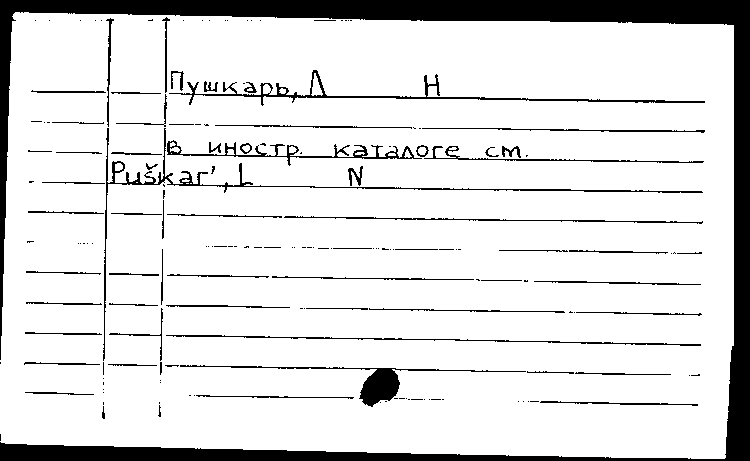 Пушкарь, Л Н
в иностр. каталоге см.
Puškar', L N